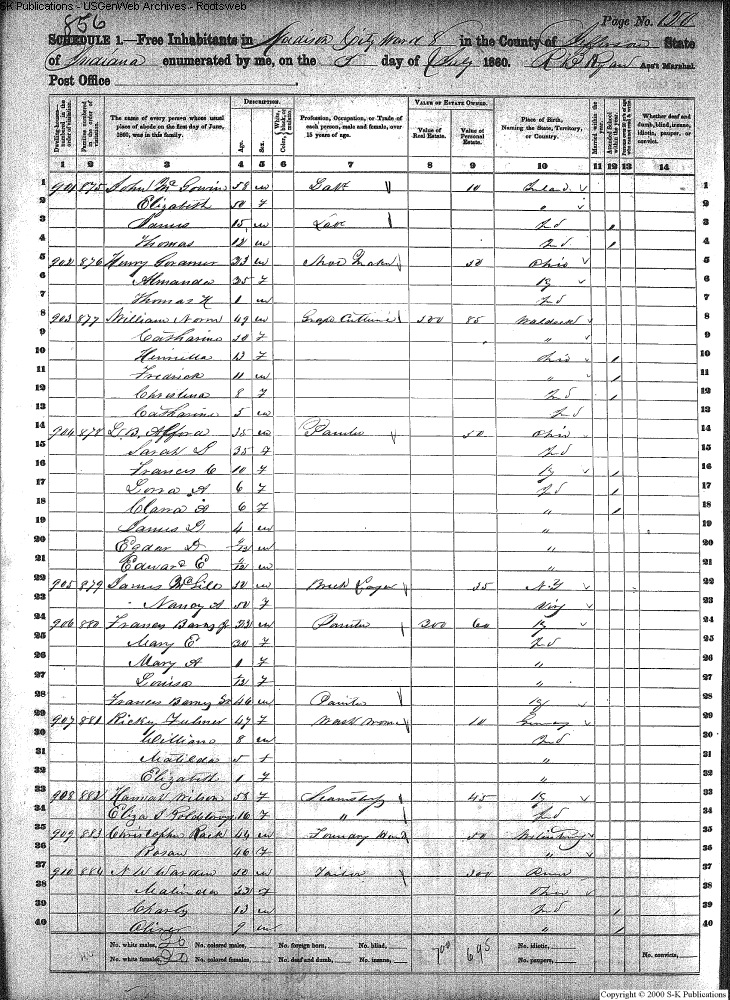 S-K Publications - USGenWeb Archives - Rootsweb
856
Page No. 120
SCHEDULE 1.—Free Inhabitants in Madison City Ward 8 in the County of Jefferson State
of Indiana enumerated by me, on the 5 day of July 1860. R. D. Ryan Ass't Marshal.
Post Office
Dwelling-houses numbered in the order of visitation.
Families numbered in the order of visitation.
The name of every person whose usual place of abode on the first day of June, 1860, was in this family.
DESCRIPTION.
Age.
Sex.
Color, White, black, or mulatto.
Profession, Occupation, or Trade of each person, male and female, over 15 years of age.
VALUE OF ESTATE OWNED.
Value of Real Estate.
Value of Personal Estate.
Place of Birth, Naming the State, Territory, or Country.
Married within the year.
Attended School within the year.
Whether deaf and dumb, blind, insane, idiotic, pauper, or convict.
1 2 3 4 5 6 7 8 9 10 11 12 13 14
1 901 875 John Mc Gowin 58 m 10 1
2 Elizabeth 50 f " 2
3 James 15 m Ind 3
4 Thomas 12 m Ind 4
5 902 876 Henry Coramer 33 m Shoe Maker 50 Ohio 5
6 Almanda 25 f Ky 6
7 Thomas H 1 m Ind 7
8 903 877 William Norm 49 m Grape Culture 500 85 Waldeck 8
9 Catharine 50 f " 9
10 Henriella 13 f Ohio 10
11 Fredrick 11 m " 11
12 Christina 8 f Ind 12
13 Catharine 5 m Ind 13
14 904 878 35 m Painter 50 Ohio 14
15 Sarah 35 f Ind 15
16 Francis C 10 f Ky 16
17 A 6 f Ind 17
18 Clara A 6 f " 18
19 James D 4 m " 19
20 Egdar D m " 20
21 Edward E m " 21
22 905 879 James 50 m Brick Layer 25 N.Y 22
23 Nancy A 50 f Virg 23
24 906 880 Frances Barns Jr 23 m Painter 200 60 Ky 24
25 Mary E 20 f Ind 25
26 Mary A 1 f " 26
27 Louisa f " 27
28 Frances Barns Sr 46 m Painter Ky 28
29 907 881 Ricky Fulmer 47 f Wash Woman 10 Germany 29
30 William 8 m Ind 30
31 Matilda 5 f " 31
32 Elizabeth 1 f " 32
33 908 882 Hannah Wilson 58 f Seamstress 45 Ky 33
34 Eliza 16 f " Ind 34
35 909 883 Christopher Rack 44 m Foundry Hand 50 35
36 Rosan 46 f " 36
37 910 884 N W Warden 50 m Tailor 300 Penn 37
38 Malinda 33 f Ohio 38
39 Charly 13 m Ind 39
40 Oliver 9 m " 40
No. white males, 20 No. colored males, No. foreign born, No. blind, 700 695 No. idiotic,
No. white females, 20 No. colored females, No. deaf and dumb, No. insane, No. paupers, No. convicts,
Copyright © 2000 S-K Publications